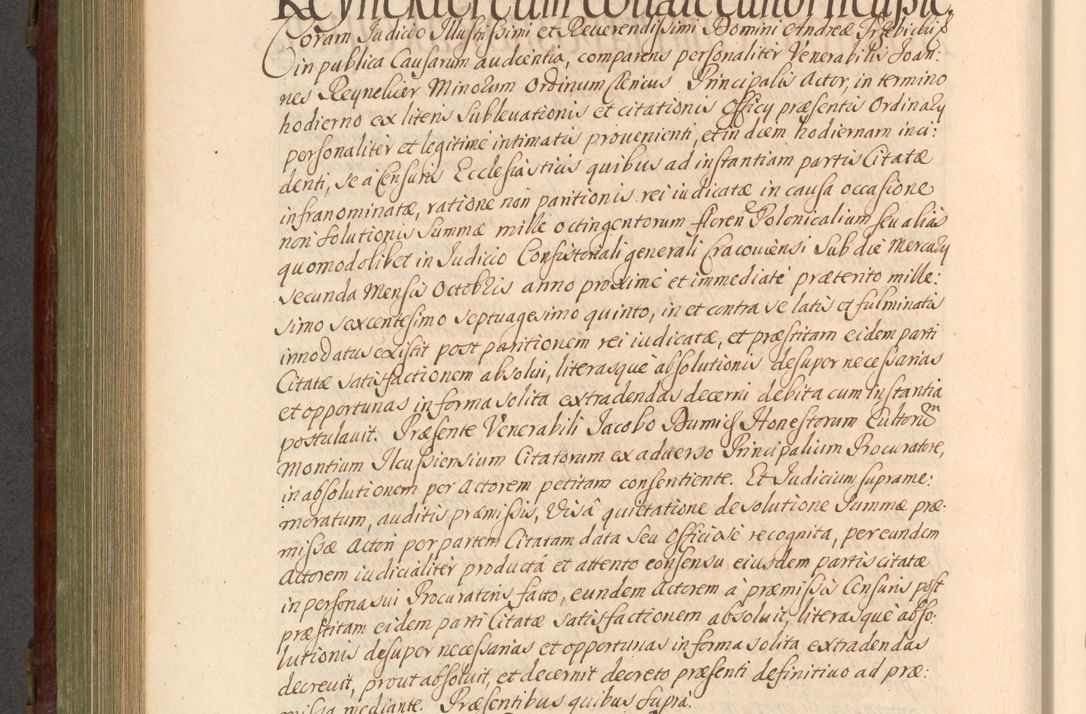 Coram Judicio Illustrissimi et Reverendissimi Domini Andreæ Trzebicki
in publica Causarum audientia, comparens personalitér Venerabilis Joan:
nes Reynekier Minorum Ordinum Clericus Principalis Actor, in termino
hodierno ex literis sublevationis et citationis Officÿ præsentis Ordinarÿ
personalitér et legitime intimatis provenienti, et in diem hodiernam inci:
denti, se à Censuris Ecclesiasticis quibus ad instantiam partis Citatæ
infranominatæ, ratione non paritionis rei iudicatæ in causa occasione
non solutionis summæ mille octingentorum floren Polonicalium seu alias
quomodolibet in Judicio Consistoriali generali Cracoviensi sub die Mercurÿ
secunda Mensis Octobris anno proxime et immediatè præterito mille:
simo sexcentesimo septuagesimo quinto, in et contra se latis et fulminatis
innodatus existit post paritionem rei iudicatæ, et præstitam eidem parti
Citatæ satisfactionem absolui, literasque absolutionis desuper necessarias
et opportunas in forma solita extradendas decerni debita cum instantia
postulauit. Præsente Venerabili Jacobo Dumicz Honestorum Cultorum
Montium Ilcussiensium Citatorum ex aduerso Principalium Procuratore,
in absolutionem per Actorem petitam consentiente. Et Judicium supramé:
moratum, auditis præmissis, visâ quietatione de solutione summæ præ:
missæ Actori per partem Citatam data seu officiose recognita, per eundem
Actorem iudicialitér producta et attento consensu eiusdem partis citatæ
in persona sui Procuratoris facto, eundem Actorem à præmissis Censuris post
præstitam eidem parti Citatæ satisfactionem absoluit, literasque abso:
lutionis desuper necessarias et opportunas in forma solita extradendas
decreuit, prout absoluit, et decernit decreto præsenti definitiuo ad præ:
missa mediante. Præsentibus quibus suprà.